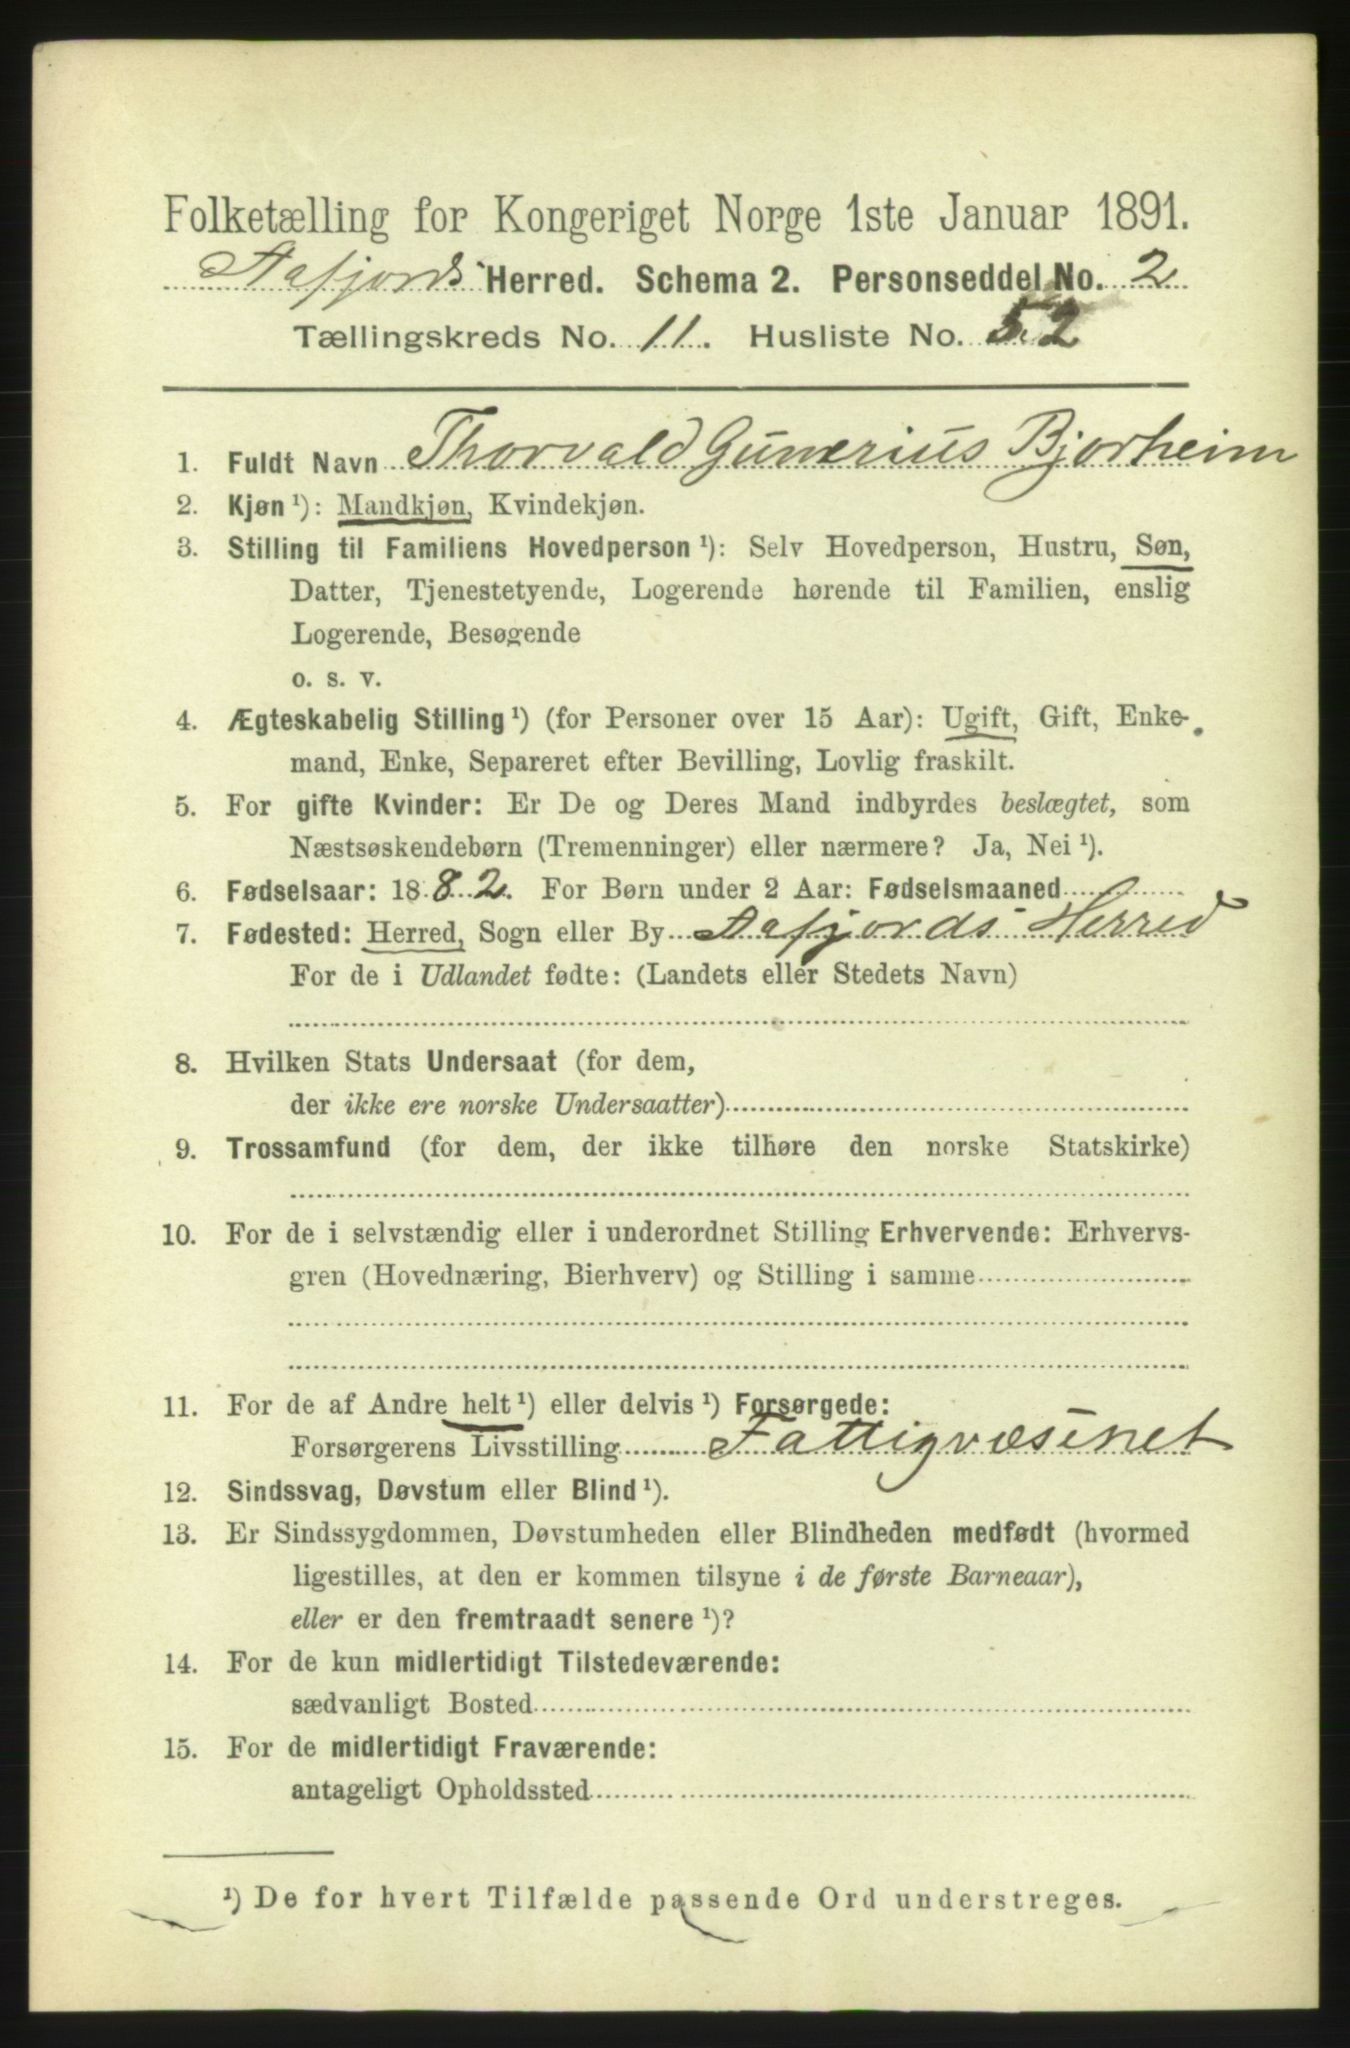 Folketælling for Kongeriget Norge 1ste Januar 1891.
Aafjords Herred. Schema 2. Personseddel No. 2
Tællingskreds No. 11. Husliste No. 52
1. Fuldt Navn Thorvald Gunerius Bjorheim
2. Kjøn ¹): Mandkjøn, Kvindekjøn.
3. Stilling til Familiens Hovedperson ¹): Selv Hovedperson, Hustru, Søn,
Datter, Tjenestetyende, Logerende hørende til Familien, enslig
Logerende, Besøgende
o. s. v.
4. Ægteskabelig Stilling ¹) (for Personer over 15 Aar): Ugift, Gift, Enke-
mand, Enke, Separeret efter Bevilling, Lovlig fraskilt.
5. For gifte Kvinder: Er De og Deres Mand indbyrdes beslægtet, som
Næstsøskendebørn (Tremenninger) eller nærmere? Ja, Nei ¹).
6. Fødselsaar: 1882. For Børn under 2 Aar: Fødselsmaaned
7. Fødested: Herred, Sogn eller By Aafjords Herred
For de i Udlandet fødte: (Landets eller Stedets Navn)
8. Hvilken Stats Undersaat (for dem,
der ikke ere norske Undersaatter)
9. Trossamfund (for dem, der ikke tilhøre den norske Statskirke)
10. For de i selvstændig eller i underordnet Stilling Erhvervende: Erhvervs-
gren (Hovednæring, Bierhverv) og Stilling i samme
11. For de af Andre helt ¹) eller delvis ¹) Forsørgede:
Forsørgerens Livsstilling Fattigvæsenet
12. Sindssvag, Døvstum eller Blind ¹).
13. Er Sindssygdommen, Døvstumheden eller Blindheden medfødt (hvormed
ligestilles, at den er kommen tilsyne i de første Barneaar),
eller er den fremtraadt senere ¹)?
14. For de kun midlertidigt Tilstedeværende:
sædvanligt Bosted
15. For de midlertidigt Fraværende:
antageligt Opholdssted
¹) De for hvert Tilfælde passende Ord understreges.